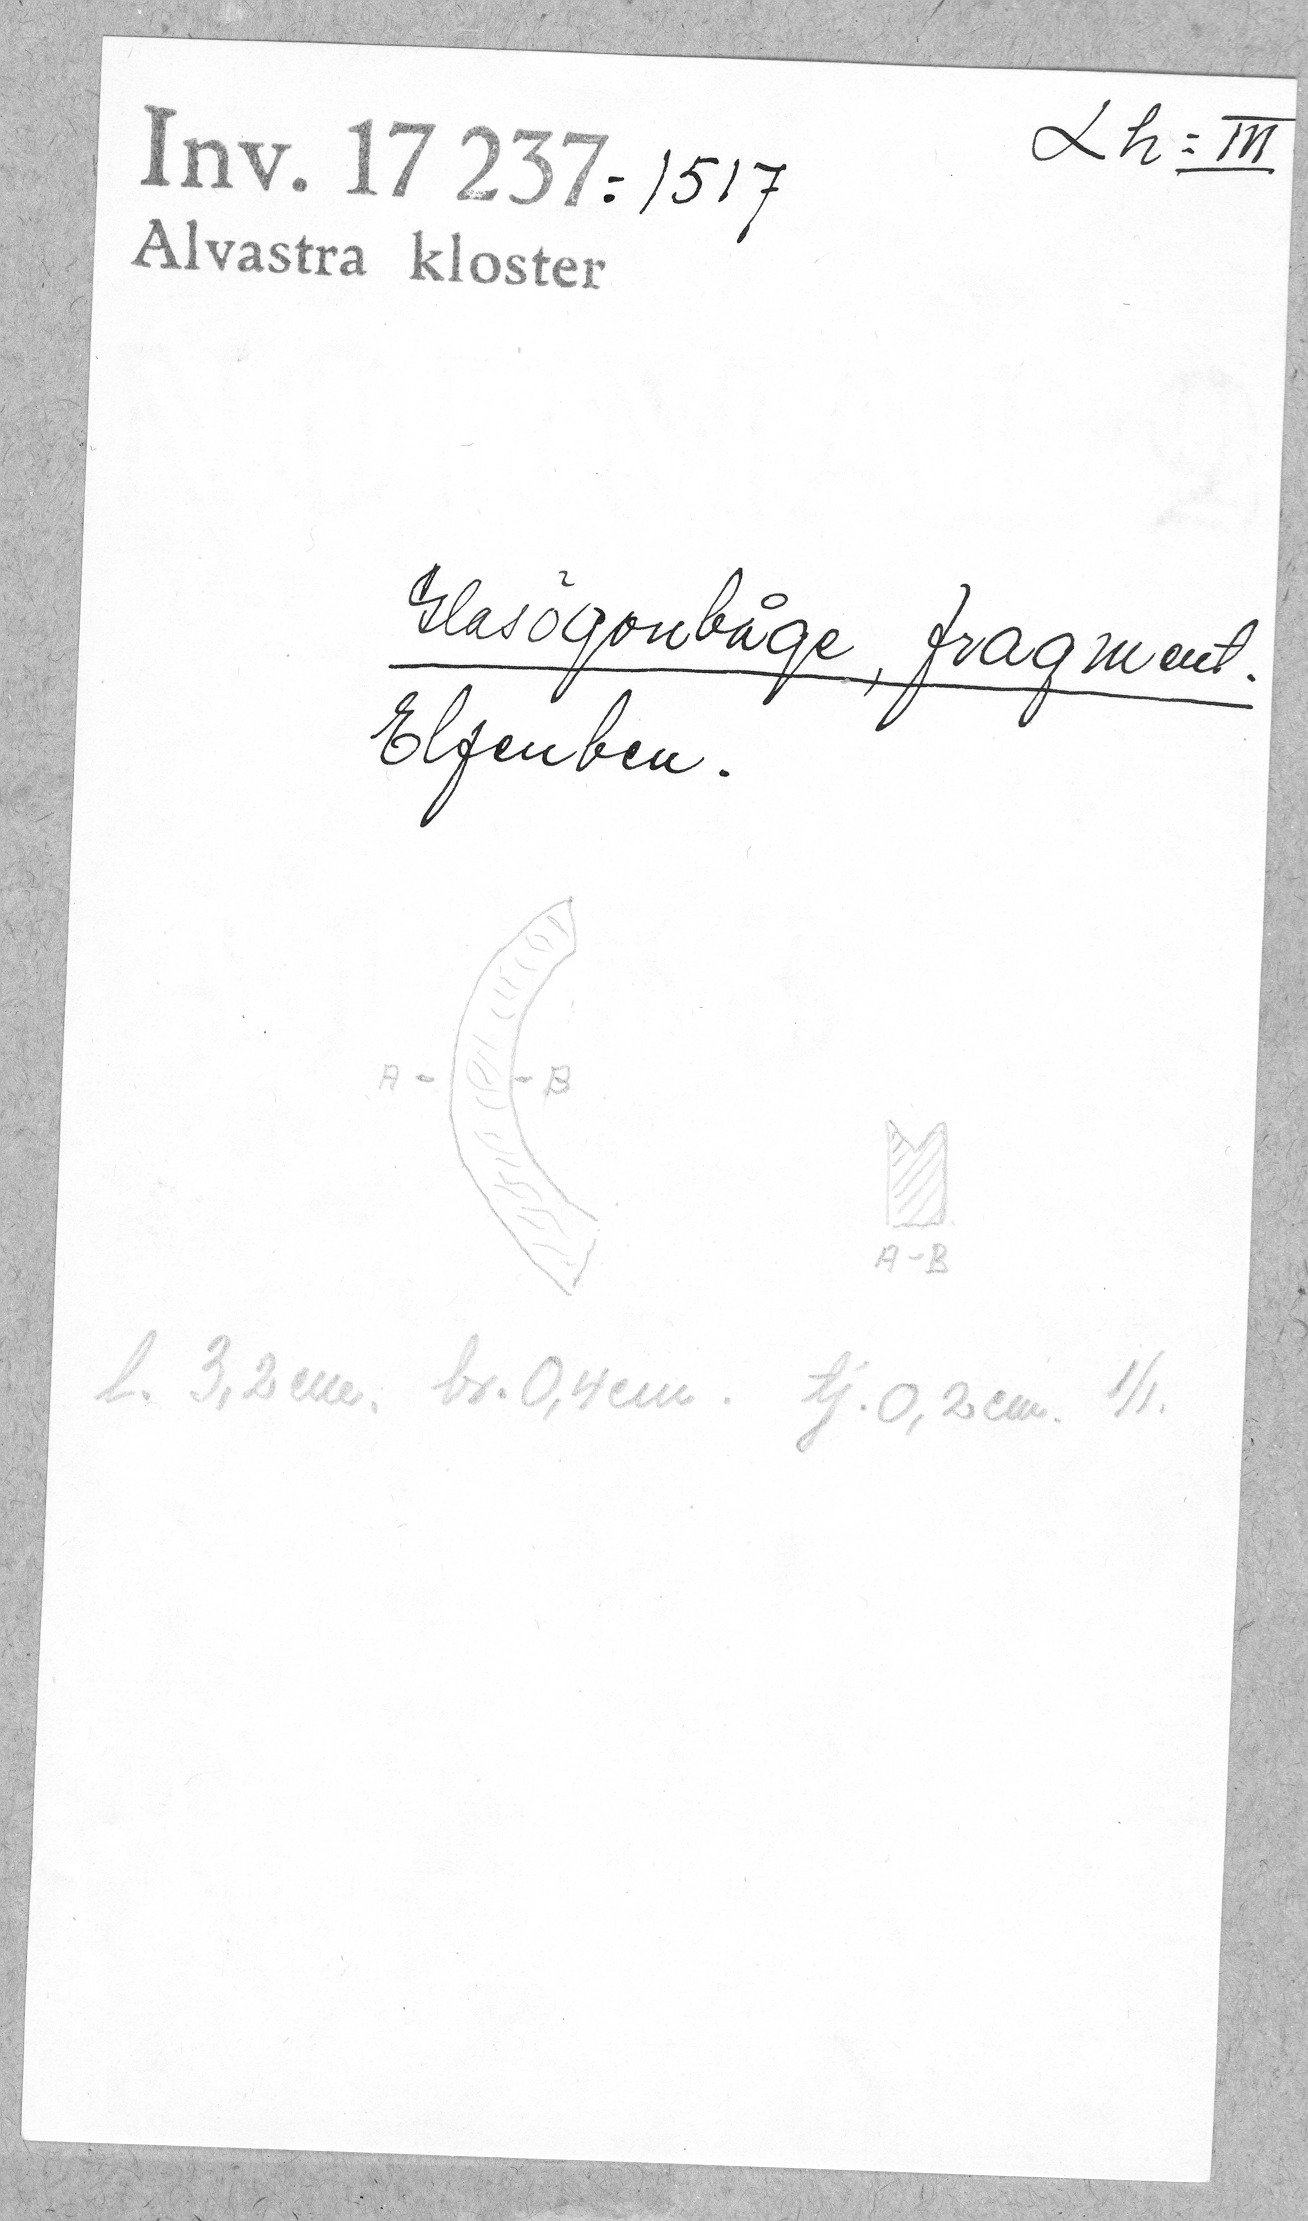 Inv. 17 237:1517
Lh:III
Alvastra kloster
Glasögonbåge, fragment.
Elfenben.
A - - B
A-B
l. 3,2 cm. br. 0,4 cm. tj. 0,2 cm. 1/1.